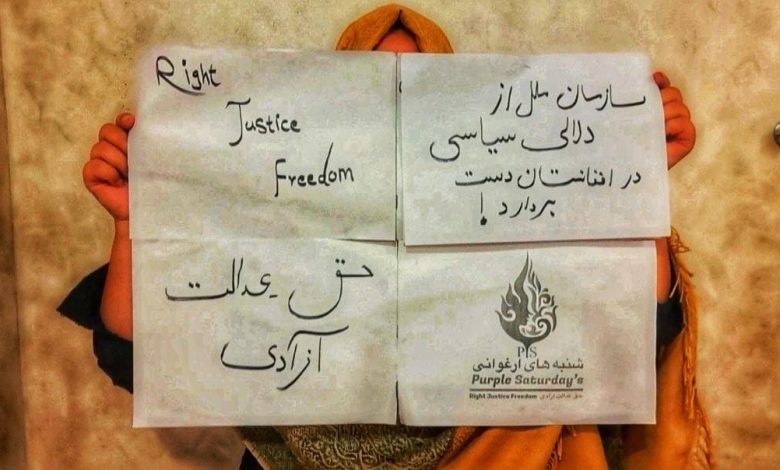 Right
Justice
Freedom
سازمان ملل از
دلالی سیاسی
در افغانستان دست
بردارد!
حق عدالت
آزادی
PS
شنبه های ارغوانی
Purple Saturday's
Right Justice Freedom حق عدالت آزادی